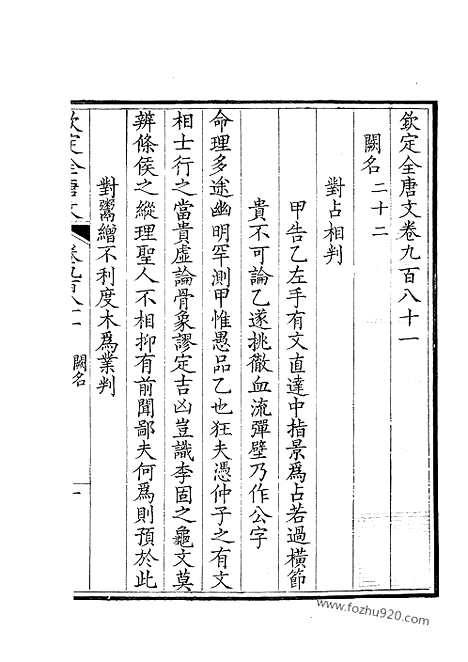 欽定全唐文卷九百八十一
闕名二十二
對占相判
甲告乙左手有文直達中指景爲占若過橫節
貴不可論乙遂挑徹血流彈壁乃作公字
命理多途幽明罕測甲惟愚品乙也狂夫憑仲子之有文
相士行之當貴虛論骨象謬定吉凶豈識李固之龜文莫
辨條侯之縱理聖人不相抑有前聞鄙夫何爲則預於此
對鬻繒不利度木爲業判
欽定全唐文
卷九百八十一
闕名
一
www.fozhu920.com